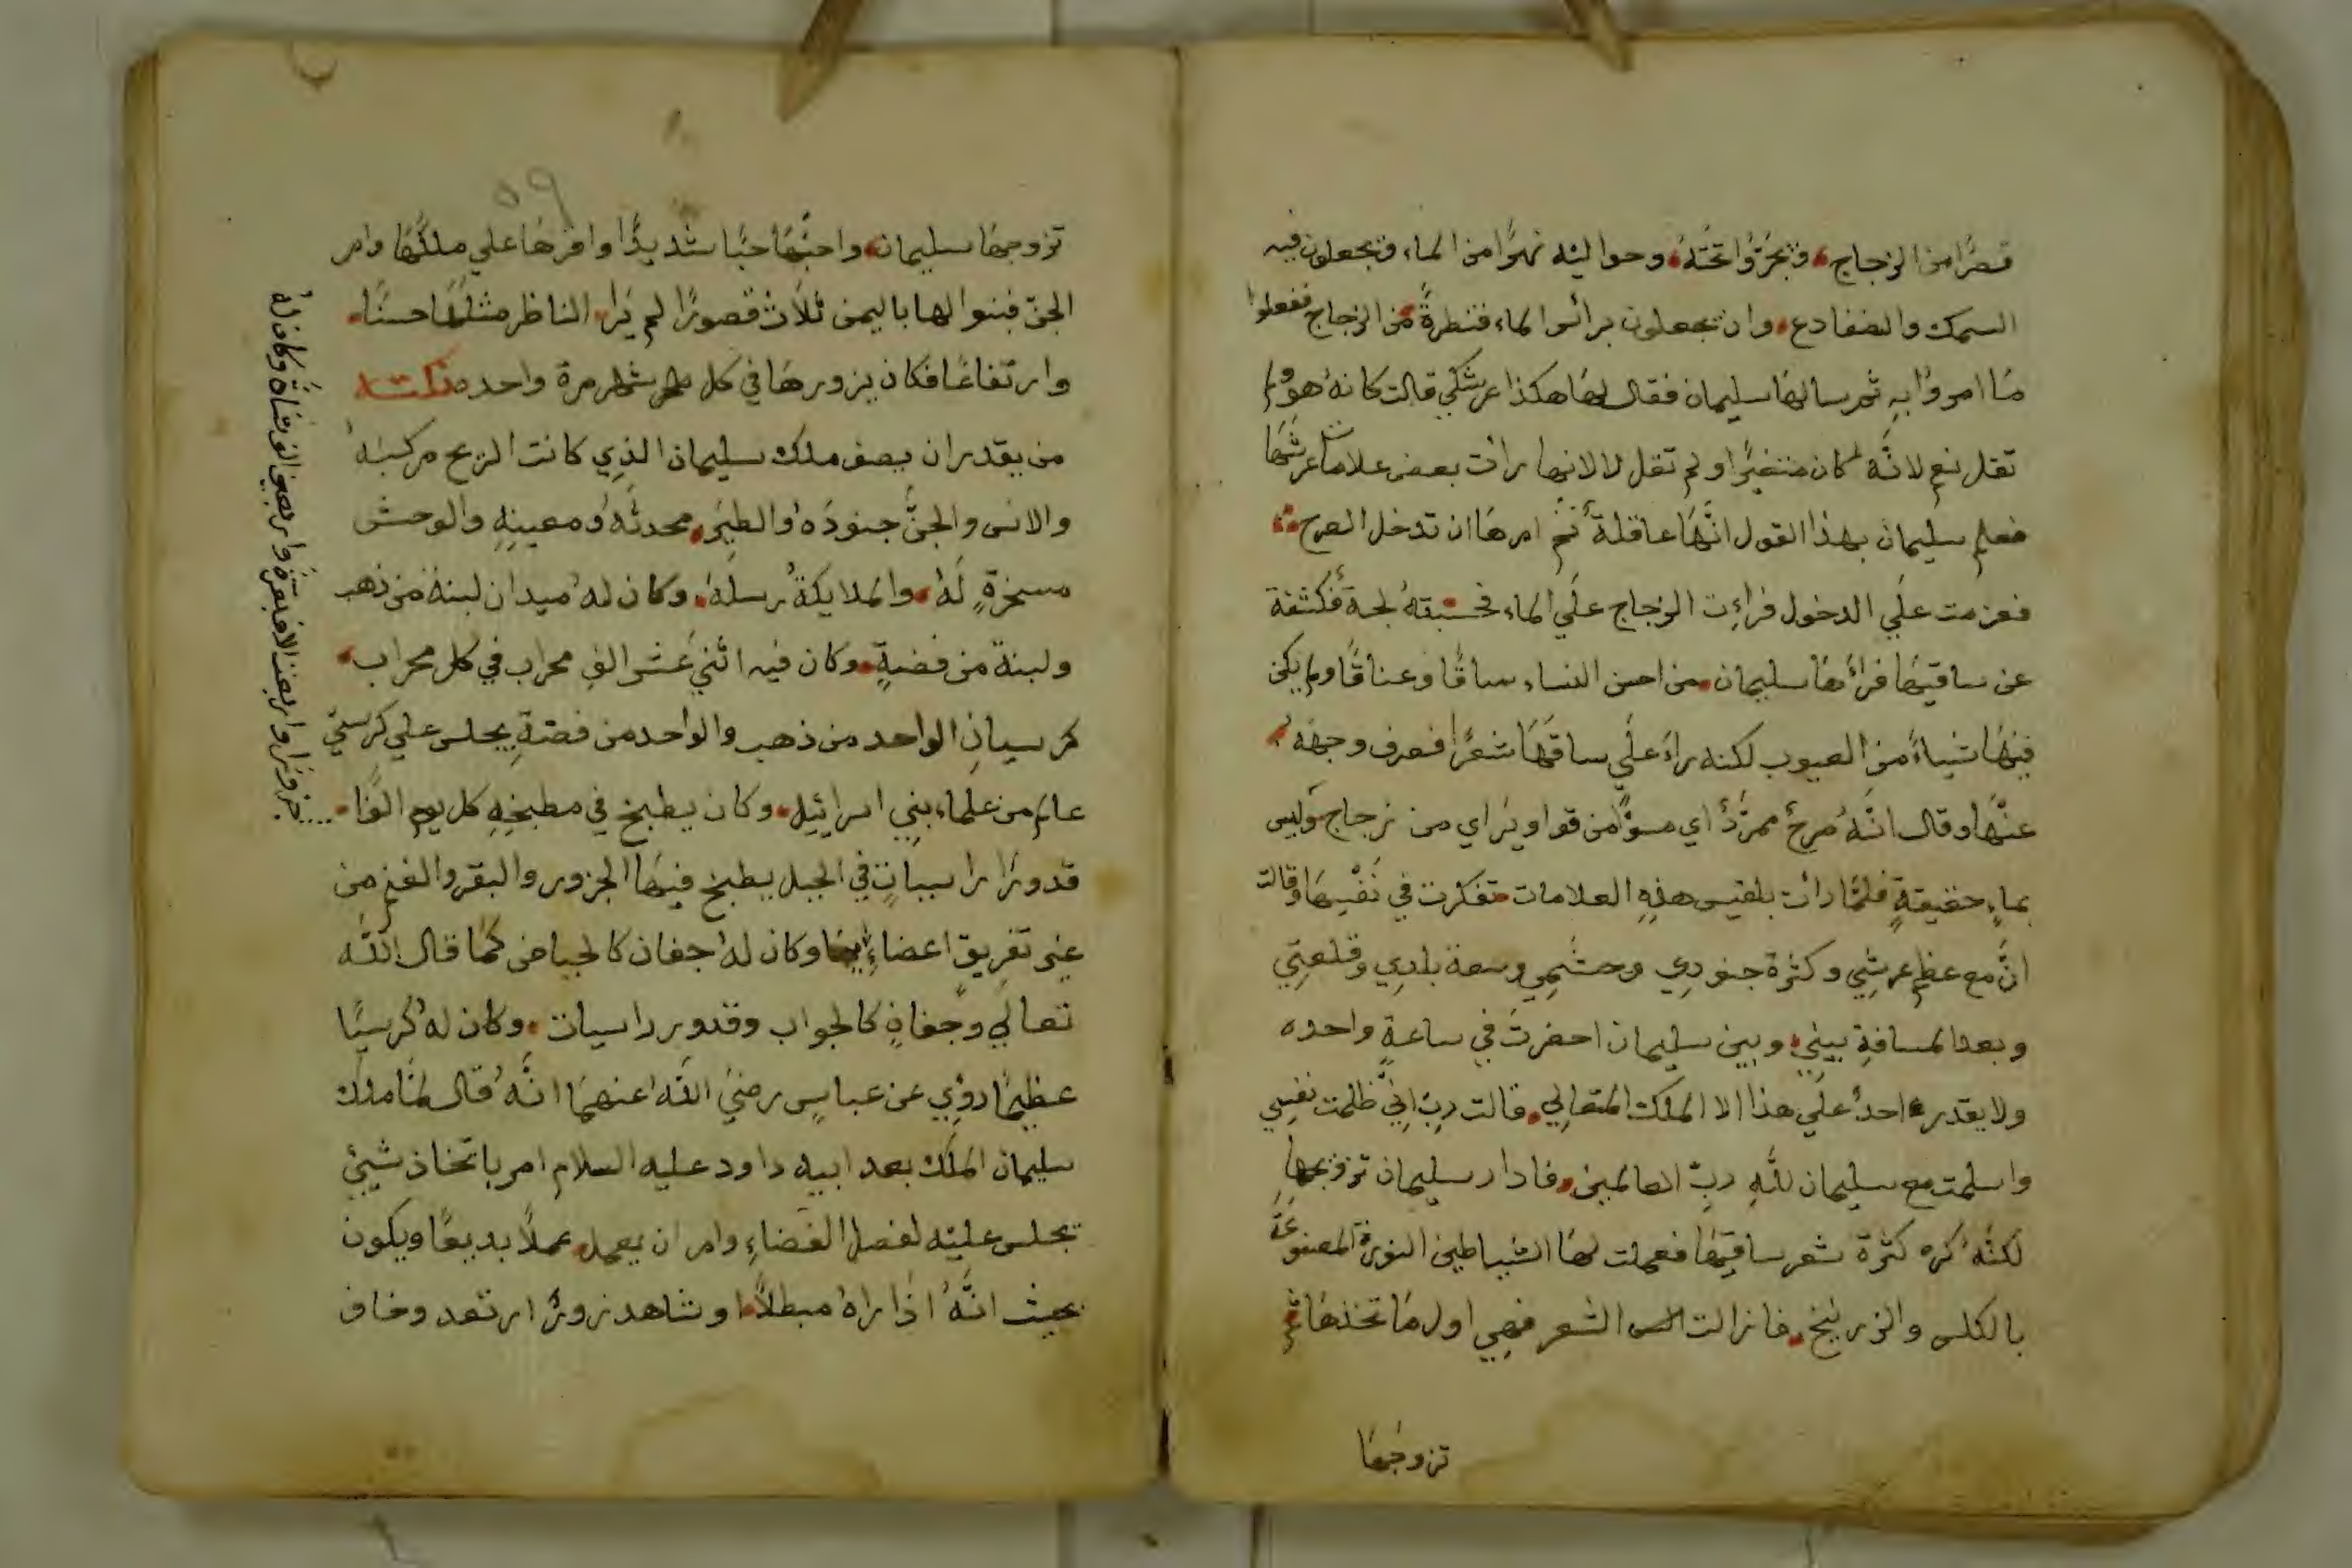 قصرًا من الزجاج، ويجرّوا تحته، وحواليه نهرًا من الماء ويجعلون فيه
السمك والضفادع، وان يجعلون برائس الماء قنطرةً من الزجاج ففعلوا
مَا امروا بهِ ثم سالهَا سليمان فقال لهَا هكذا عرشكي قالت كانهُ هو ولم
تقل نعم لانّه كان متغيرًا ولم تقل لا لانها رات بعض علامات عرشهَا
فعلم سليمان بهذا القول انّهَا عاقلة ثم امرهَا ان تدخل الصرح
فعزمت علي الدخول فرائت الزجاج علَي الماء فحسبتهُ لجة فكشفة
عن ساقيهَا فرائهَا سليمان من احسن النساء ساقًا وعناقًا ولم يكن
فيهَا شياءً من العيوب لكنه راء علَي ساقهَا شعرًا فصرف وجهه
عنهَا وقال انّهُ صرحٌ ممرّدٌ اي مسوًّا من قواوير اي من زجاج وليس
بماءٍ حقيقةٍ فلمَّا رات بلقيس هذهِ العلامات تفكرت في نَفْسِهَا وقالت
انَّ مع عظم عرشِي وكثرة جنودِي وحشَمِي وسعة بلادِي وقلعتِي
وبعد المسافةِ بيني، وبين سليمان احضرتَ في ساعةٍ واحده
ولا يقدر احدٌ علَي هذا الا الملك المتعالِي، قالت ربّ انِّي ظلمت نفسِي
واسلمت مع سليمان للّهِ ربّ العالمين، فاداد سليمان تزوّجها
لكنّهُ كره كثرة شعر ساقيهَا فعملت لهَا الشياطين النورة المصنوعَة
بالكلس والزرنيخ، فانزالت الشعر فهي اول مَا تخذهَا ثم
تزوجهَا
تزوجهَا سليمان، واحبّهَا حبًّا شديدًا واقرهَا علي ملكهَا وامر
الجنّ فبنوا لها باليمن ثلاث قصورًا لم يَرا، الناظر مثلهَا حسنًا،
وارتفاعًا فكان يزورهَا في كل شهر مرة واحده نكتـه
من يقدر ان يصف ملك سليمان الذِي كانت الريح مركبَهُ
والانس والجنُّ جنودَهُ والطيَر، محدثهُ ومعينِهِ والوحش
مسخرةٍ لَهُ، والملايكةُ رسلهُ، وكان لهُ ميدان لبنة من ذهب
ولبنة من فضةٍ، وكان فيه اثني عَشر الفِ محراب في كل محراب،
كرسيانِ الواحد من ذهب والواحد من فضةِ يجلس علي كرسيّ
عالم من علماء بنِي اسرائيل، وكان يطبخ في مطبخِهِ كل يوم الفًا،
جزورًا واربعت الاف بقرة واربعين الف شاة وكان لهُ
قدورًا راسياتٍ في الجبل يطبخ فيهَا الجزور والبقر والغنم من
غير تفريق اعضاءٍ وكان لهُ اجفان كالحياض كمَا قال اللّه
تعالي وجفانٍ كالجواب وقدور راسيات، وكان لهُ كُرسيًّا
عظيمًا رويِ عن عباسٍ رضيَ اللّه عنهمَا انّهُ قال لمّا ملك
سليمان الملك بعد ابيه داود عليه السلام امر باتخاذ شيئٍ
يجلس عليْه لفصل القضاءِ وامر ان يعمل، عملاً بديعًا ويكون
بحيث انّهُ اذا راهُ مبطلاً، او شاهد زورٌ ارتعد وخاف